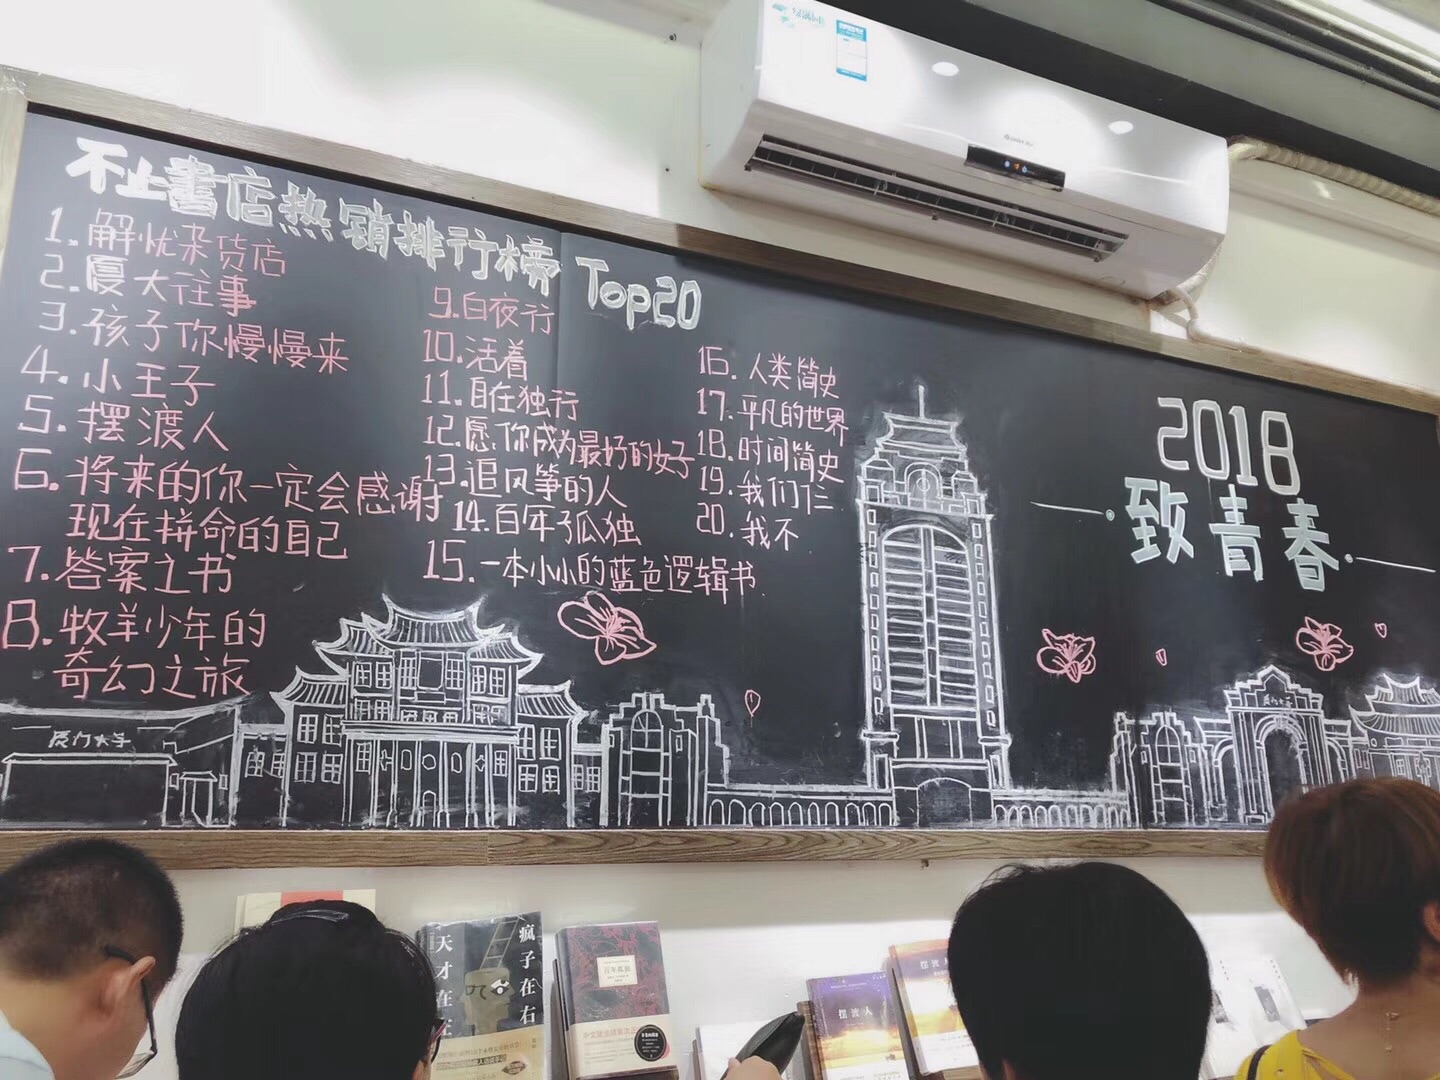 不止書店热销排行榜 Top20
1. 解忧杂货店
2. 厦大往事
3. 孩子你慢慢来
4. 小王子
5. 摆渡人
6. 将来的你一定会感谢
现在拼命的自己
7. 答案之书
8. 牧羊少年的
奇幻之旅
9. 白夜行
10. 活着
11. 自在独行
12. 愿你成为最好的女子
13. 追风筝的人
14. 百年孤独
15. 一本小小的蓝色逻辑书
16. 人类简史
17. 平凡的世界
18. 时间简史
19. 我们仨
20. 我不
2018
致青春
厦门大学
厦门大学
天才在左
疯子在右
百年孤独
摆渡人
摆渡人